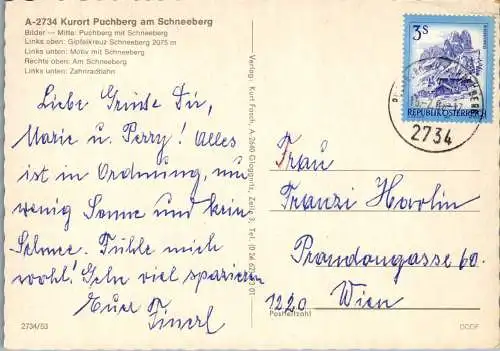 A-2734 Kurort Puchberg am Schneeberg
Bilder — Mitte: Puchberg mit Schneeberg
Links oben: Gipfelkreuz Schneeberg 2075 m
Links unten: Motiv mit Schneeberg
Rechts oben: Am Schneeberg
Links unten: Zahnradbahn
Liebe Grüße Dir,
Marie u. Perry! Alles
ist in Ordnung, nur
wenig Sonne und kein
Schnee. Fühle mich
wohl! Gehe viel spazieren
Eure
2734/53
Verlag: Kurt Fasch, A 2640 Gloggnitz, Zeile 3, Tel.
3S
REPUBLIK ÖSTERREICH
2734
Frau
Franzi
Prandaugasse 60.
1220 Wien
Postleitzahl